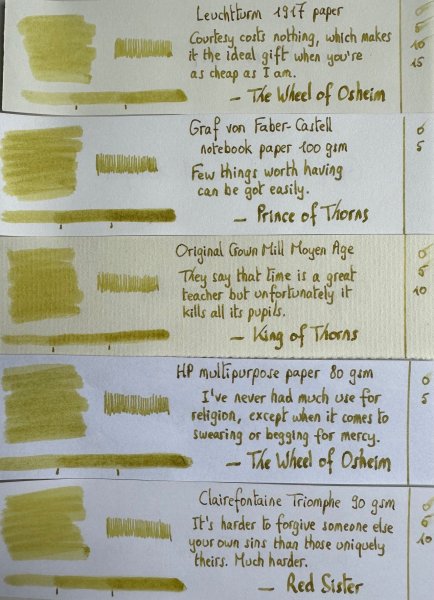 Leuchtturm 1917 paper
Courtesy costs nothing, which makes
it the ideal gift when you're
as cheap as I am.
– The Wheel of Osheim
0
5
10
15
Graf von Faber-Castell
notebook paper 100 gsm
Few things worth having
can be got easily.
– Prince of Thorns
0
5
Original Crown Mill Moyen Age
They say that time is a great
teacher but unfortunately it
kills all its pupils.
– King of Thorns
0
5
10
HP multipurpose paper 80 gsm
I've never had much use for
religion, except when it comes to
swearing or begging for mercy.
– The Wheel of Osheim
0
5
Clairefontaine Triomphe 90 gsm
It's harder to forgive someone else
your own sins than those uniquely
theirs. Much harder.
– Red Sister
0
5
10